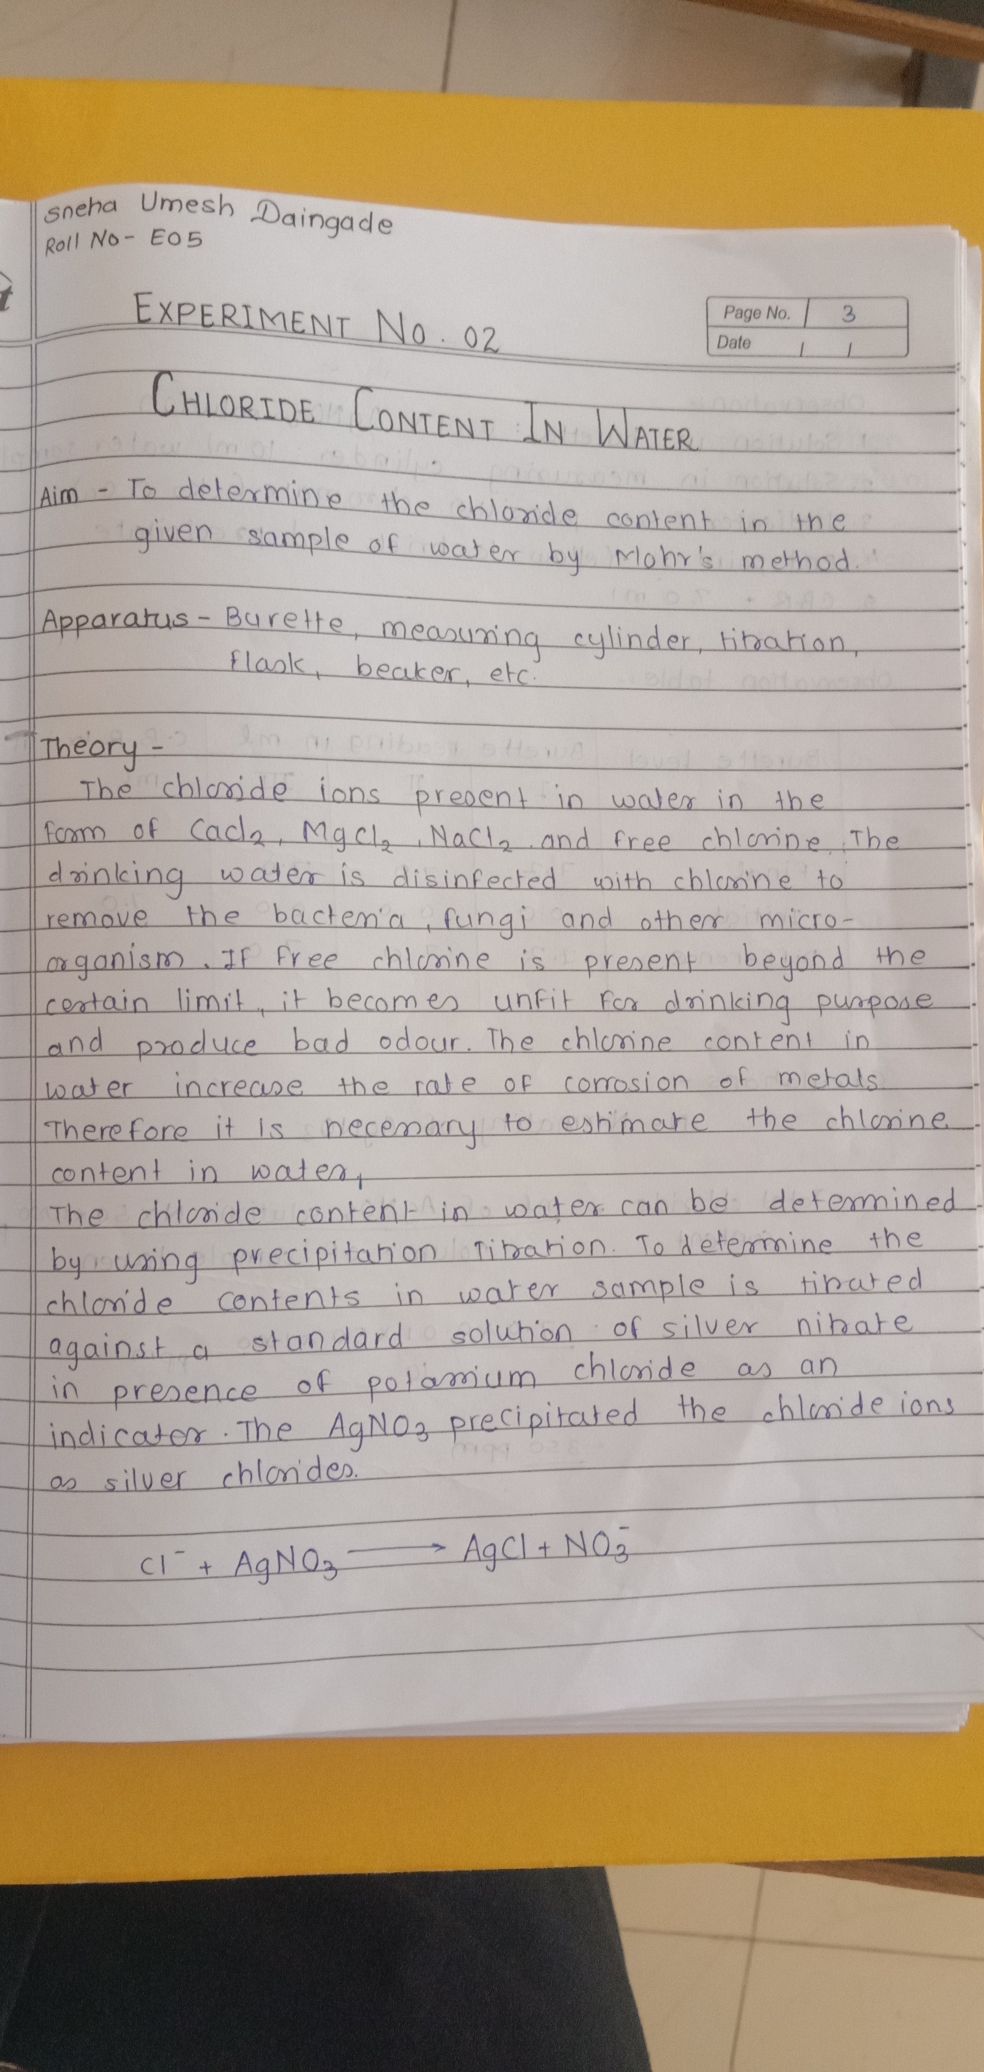 Sneha Umesh Daingade
Roll No- E05
EXPERIMENT NO. 02
Page No. 3
Date / /
CHLORIDE CONTENT IN WATER
Aim - To determine the chloride content in the
given sample of water by Mohr's method.
Apparatus - Burette, measuring cylinder, titration,
flask, beaker, etc.
Theory -
The chloride ions present in water in the
form of CaCl2, MgCl2, NaCl2 and free chlorine. The
drinking water is disinfected with chlorine to
remove the bacteria, fungi and other micro-
organism. If free chlorine is present beyond the
certain limit, it becomes unfit for drinking purpose
and produce bad odour. The chlorine content in
water increase the rate of corrosion of metals
Therefore it is necessary to estimate the chlorine
content in water,
The chloride content in water can be determined
by using precipitation Titration. To determine the
chloride contents in water sample is titrated
against a standard solution of silver nitrate
in presence of potassium chloride as an
indicator. The AgNO3 precipitated the chloride ions
as silver chlorides.
Cl⁻ + AgNO3 ⟶ AgCl + NO3⁻